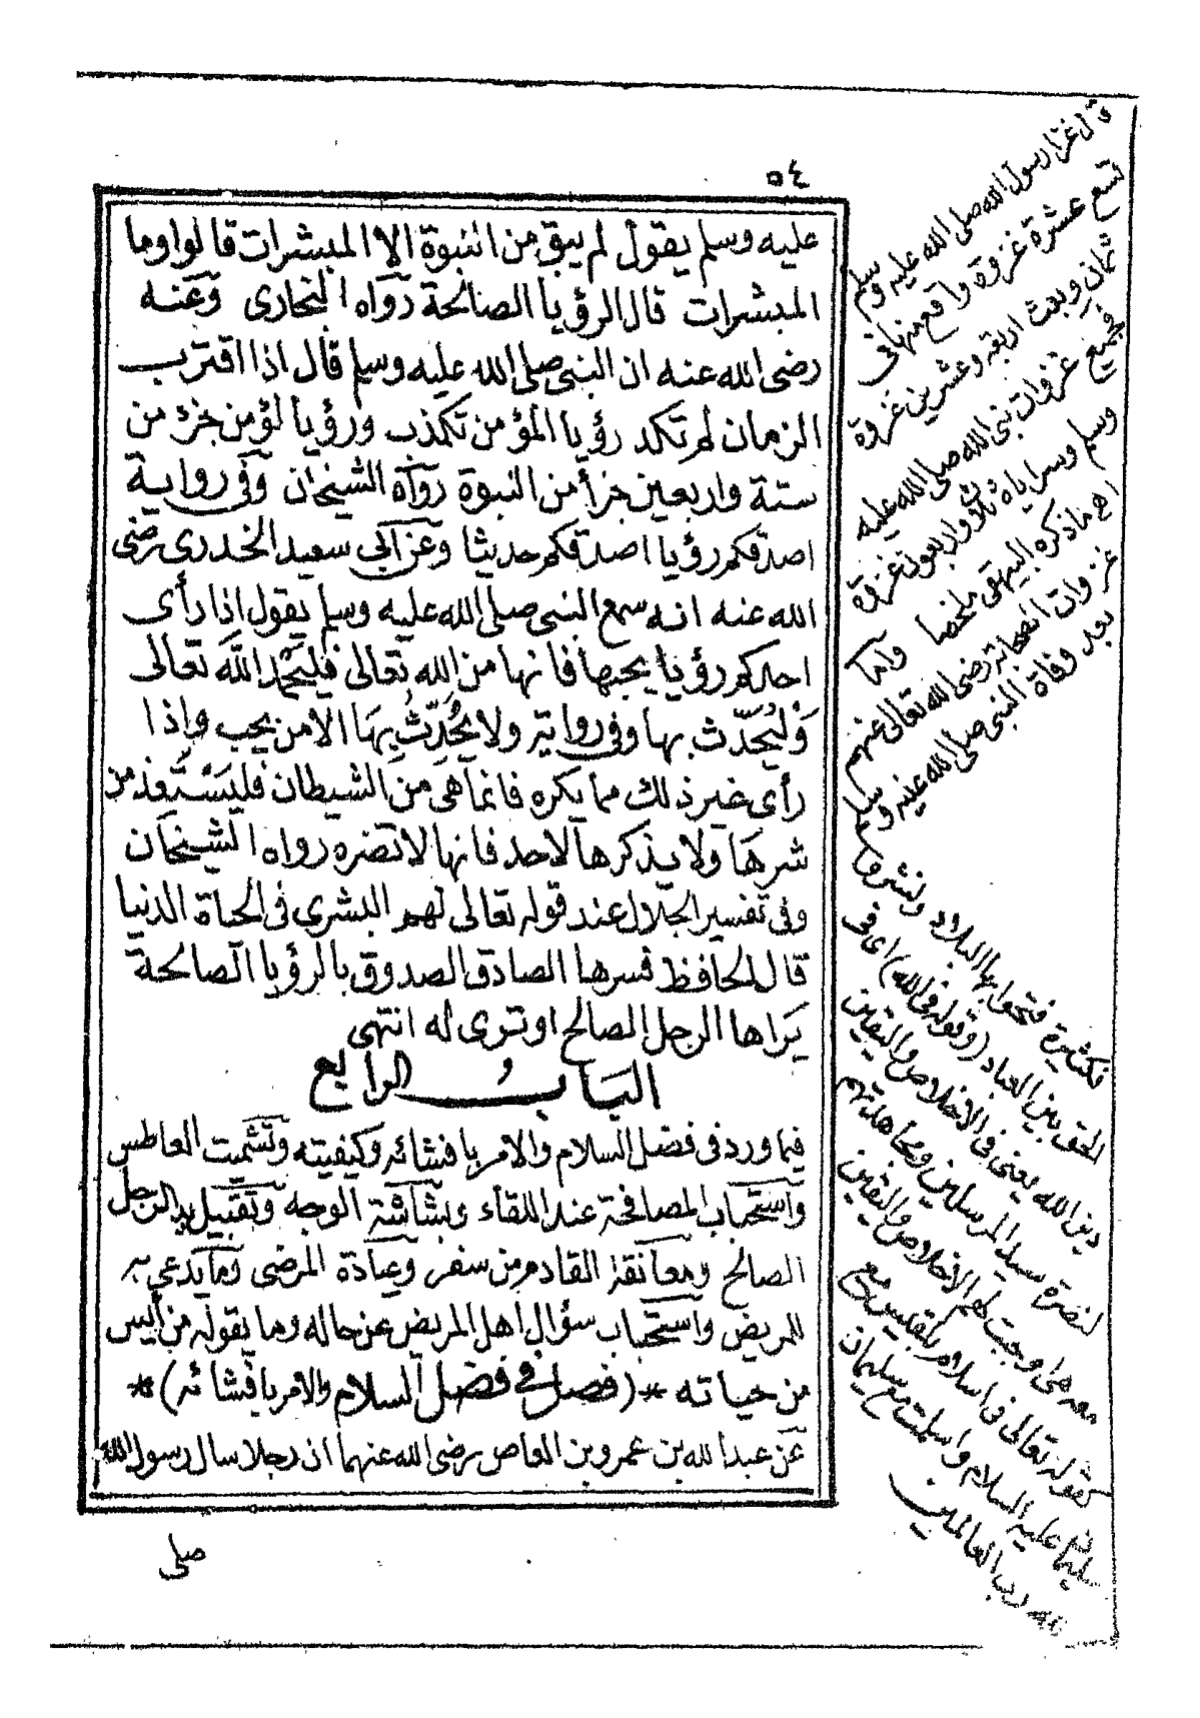 ٥٤
عليه وسلم يقول لم يبق من النبوة الا المبشرات قالوا وما
المبشرات قال الرؤيا الصالحة رواه البخارى وعنه
رضى الله عنه ان النبى صلى الله عليه وسلم قال اذا اقترب
الزمان لم تكد رؤيا المؤمن تكذب ورؤيا لؤمن جزؤ من
ستة واربعين جزأ من النبوة رواه الشيخان وفى رواية
اصدقكم رؤيا اصدقكم حديثا وعن ابي سعيد الخدرى رضى
الله عنه انه سمع النبى صلى الله عليه وسلم يقول اذا رأى
احدكم رؤيا يحبها فانها من الله تعالى فليَحْمد اللّٰهَ تعالى
وَلْيُحَدّث بها وفى رواية ولا يُحَدِّثُ بِهَا الا من يحب واِذا
رأى غير ذلك مما يكره فانما هى من الشيطان فليَسْتَعِذ من
شرهَا ولا يذكرها لاحد فانها لا تضره رواه الشيخان
وفى تفسير الجلال عند قوله تعالى لهم البشرى فى الحياة الدنيا
قال الحافظ فسرها الصادق الصدوق بالرؤيا الصالحة
يَراها الرجل الصالح او ترى له انتهى
البَابُ الرابع
فيما ورد فى فضل السلام والامر بافشائه وكيفيته وتشميت العاطس
واستحباب المصافحة عند اللقاء وبشاشة الوجه وتقبيل يد الرجل
الصالح ومعانقة القادم من سفر وعيادة المرضى وما يدعى به
للمريض واستحباب سؤال اهل المريض عن حاله وما يقوله من أيس
من حياته * (فصل فى فضل السلام والامر بافشائه) *
عن عبد الله بن عمرو بن العاص رضى الله عنهما ان رجلا سال رسول الله
صلى
غزا رسول الله صلى الله عليه وسلم
تسع عشرة غزوة واقع منها فى
ثمان وبعث اربعة وعشرين غزوة
فجميع غزوات نبى الله صلى الله عليه
وسلم وسراياه ثلاث واربعون غزوة
اهـ ما ذكره البيهقى ملخصا واما
غزوات الصحابة رضى الله تعالى عنهم
بعد وفاة النبى صلى الله عليه وسلم
فكثيرة فتحوا بها البلاد ونشروا
الحق بين العباد (وقوله فى الله) اى فى
دين الله يعنى فى الاخلاص واليقين
لنصرة سيد المرسلين ومجاهدتهم
معه حتى وجبت لهم الاخلاص واليقين
كقوله تعالى فى اسلام بلقيس مع
سليمان عليه السلام واسلمت مع سليمان
لله رب العالمين